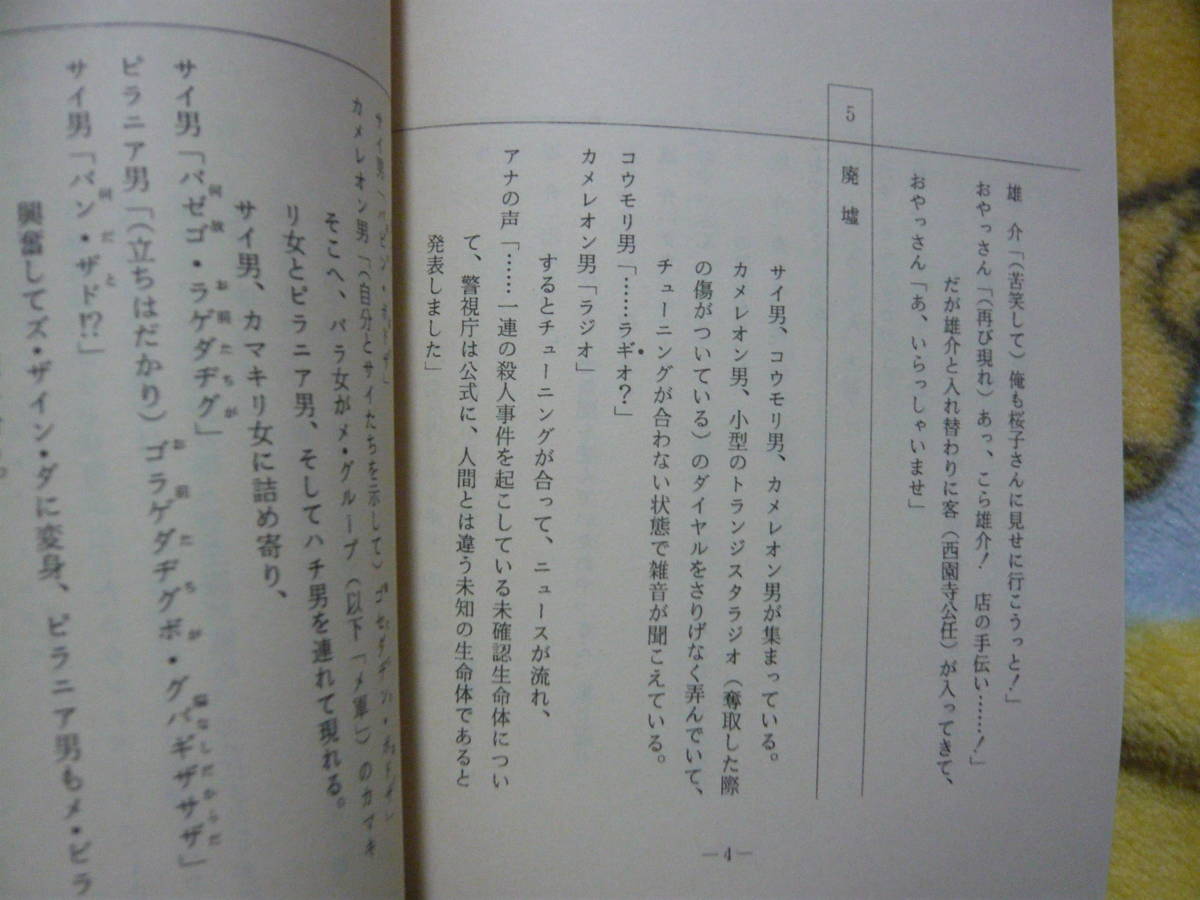 雄　介「（苦笑して）俺も桜子さんに見せに行こうっと！」
おやっさん「（再び現れ）あっ、こら雄介！　店の手伝い……！」
だが雄介と入れ替わりに客（西園寺公任）が入ってきて、
おやっさん「あ、いらっしゃいませ」
5　廃墟
サイ男、コウモリ男、カメレオン男が集まっている。
カメレオン男、小型のトランジスタラジオ（奪取した際
の傷がついている）のダイヤルをさりげなく弄んでいて、
チューニングが合わない状態で雑音が聞こえている。
コウモリ男「……ラギオ？」
カメレオン男「ラジオ」
するとチューニングが合って、ニュースが流れ、
アナの声「……一連の殺人事件を起こしている未確認生命体につい
て、警視庁は公式に、人間とは違う未知の生命体であると
発表しました」
―4―
サイ男「
カメレオン男「（自分とサイたちを示して）
そこへ、バラ女がメ・グループ（以下「メ軍」）のカマキ
リ女とピラニア男、そしてハチ男を連れて現れる。
サイ男、カマキリ女に詰め寄り、
サイ男「バゼゴ・ラゲダヂグ」
何故　お前たちが
ピラニア男「（立ちはだかり）ゴラゲダヂグボ・グバギザサザ」
お前たちが
サイ男「バン・ザド!?」
何だと
興奮してズ・ザイン・ダに変身、ピラニア男もメ・ビラ